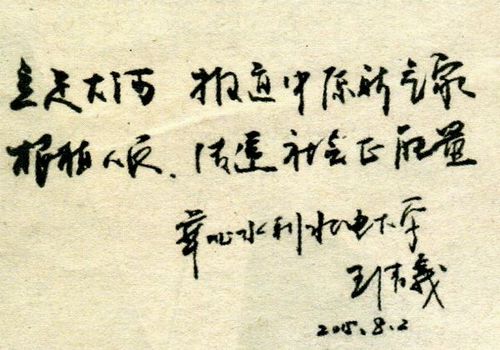 立足大河 报道中原新气象
根植人民、传递社会正能量
华北水利水电大学
王清义
2015.8.2